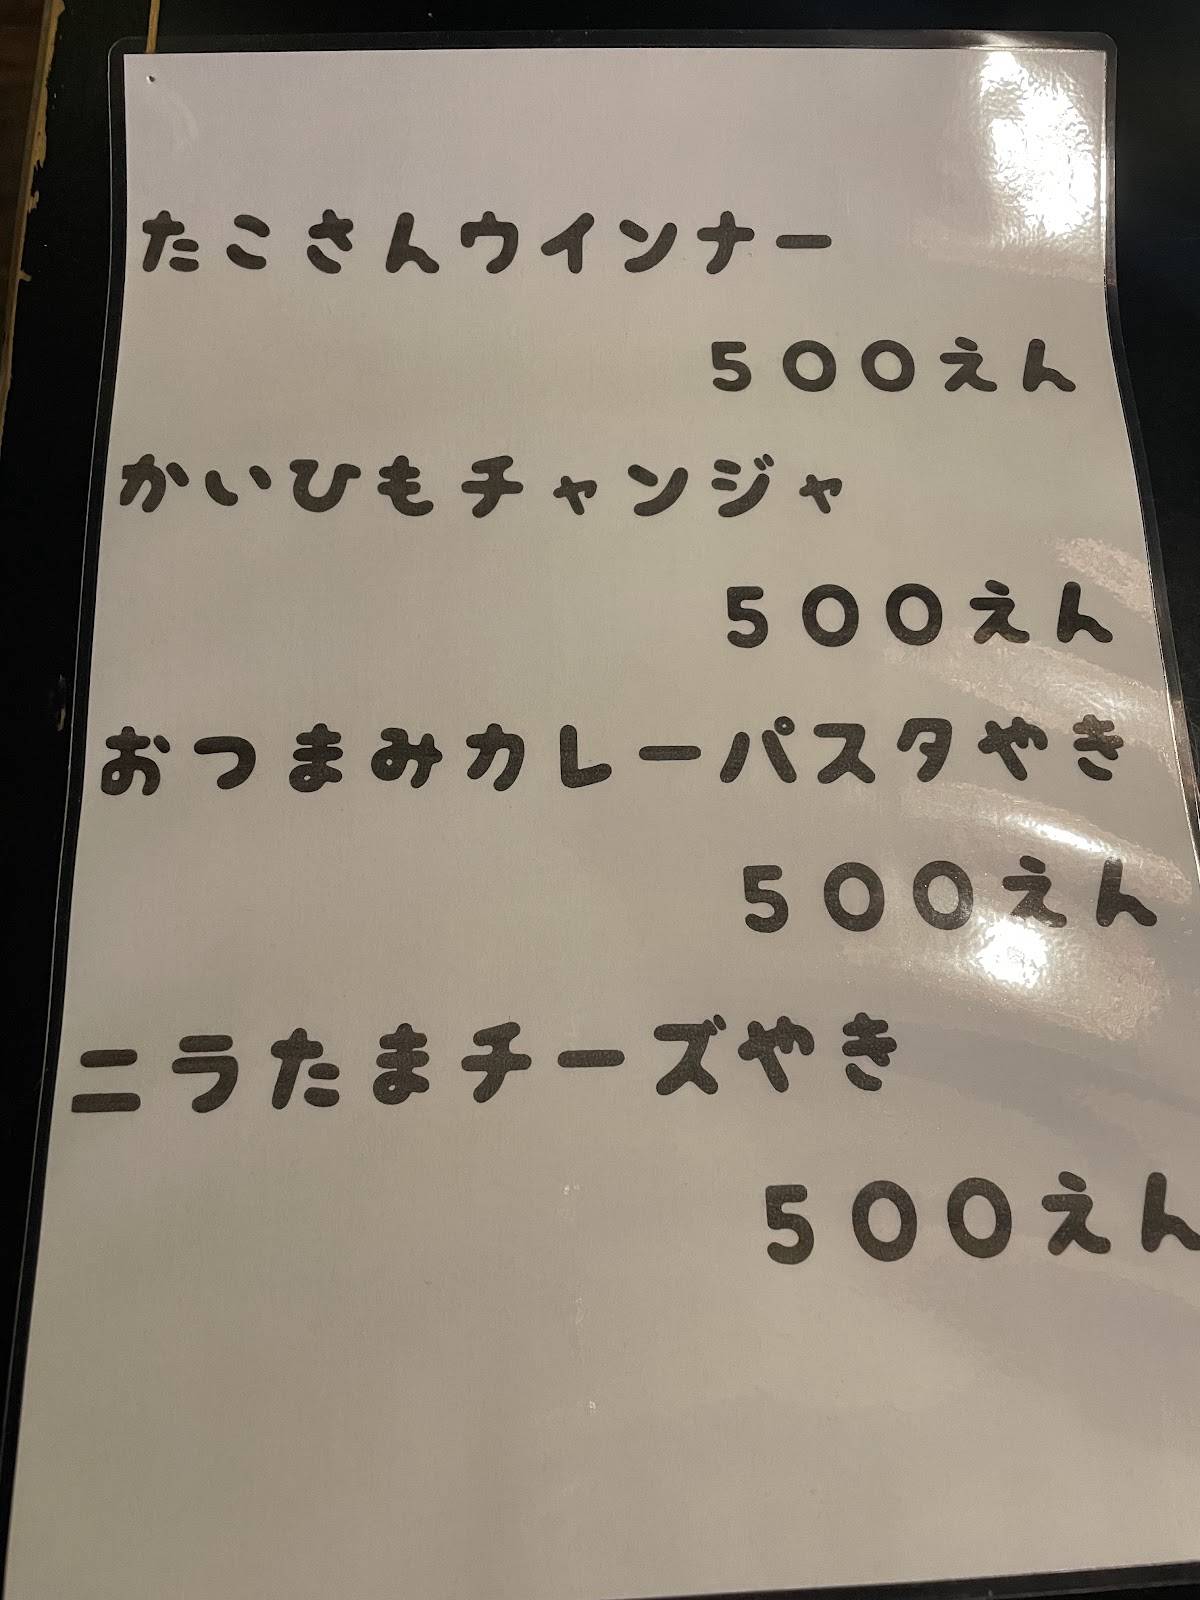 たこさんウインナー
５００えん
かいひもチャンジャ
５００えん
おつまみカレーパスタやき
５００えん
ニラたまチーズやき
５００えん